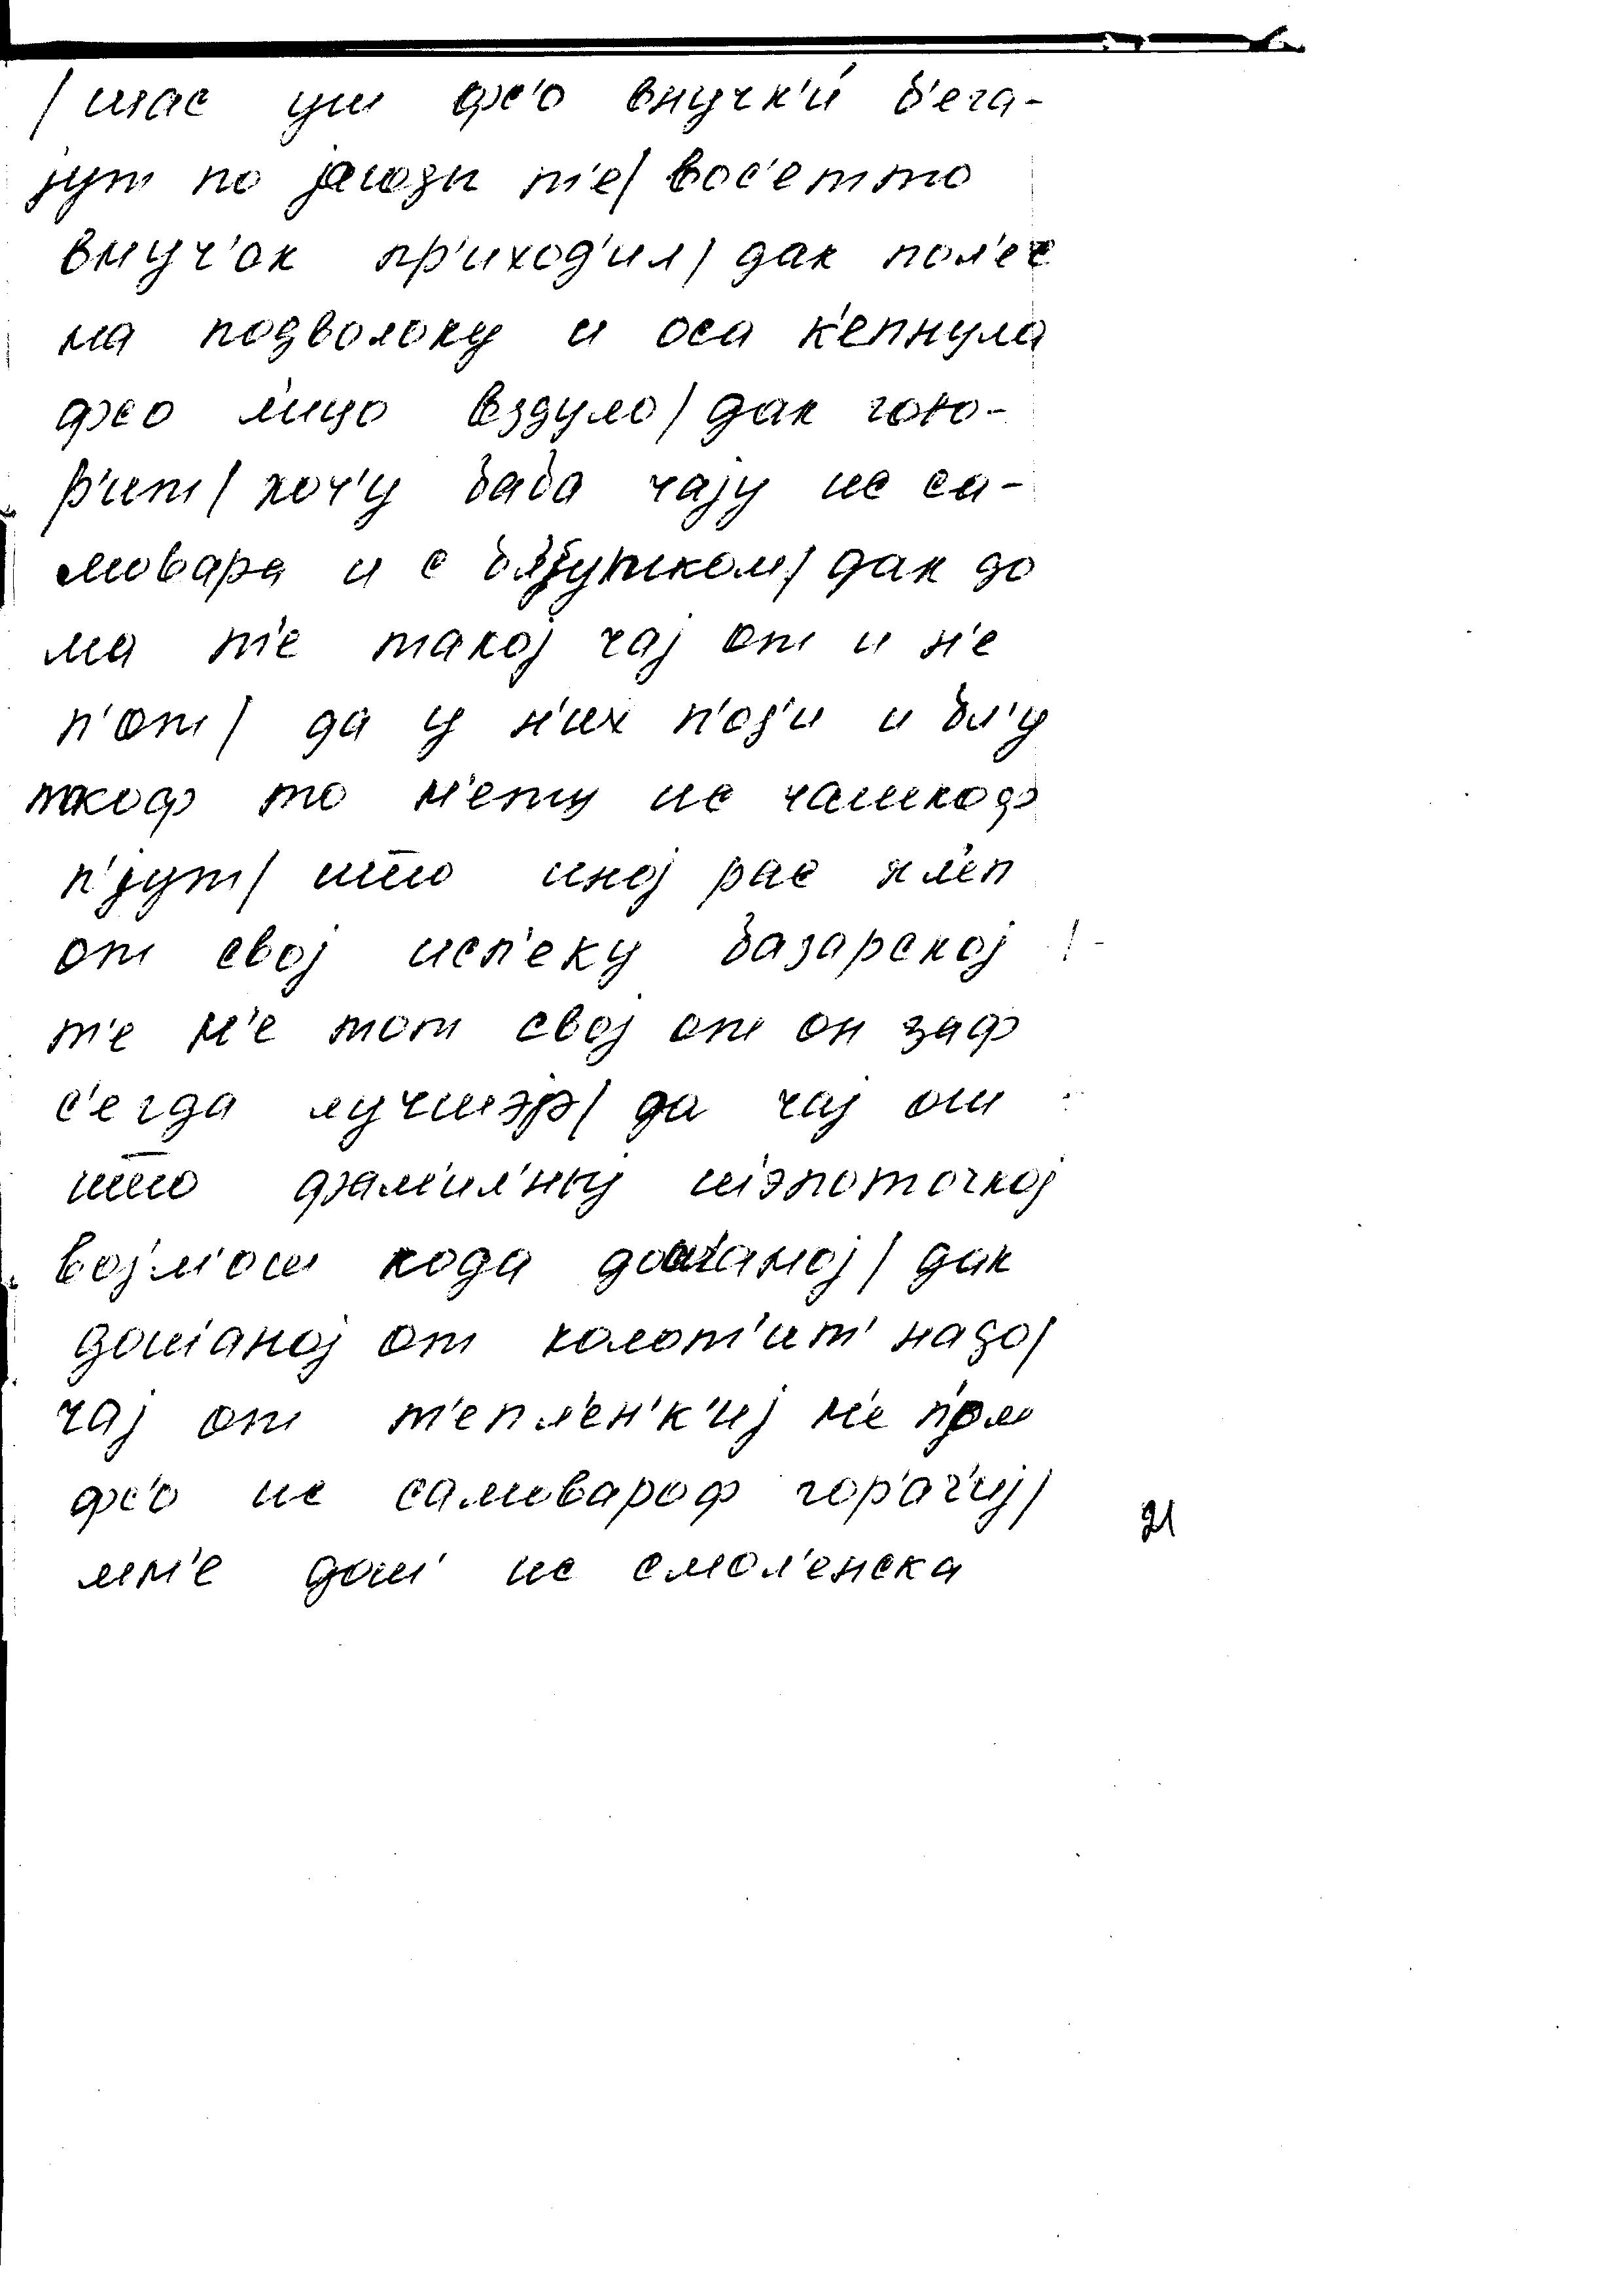 / шас уш фс'о внучк'и б'ега-
јут по јагоды т'е/ вос'етто
внуч'ок пр'иход'ил/ дак пол'ес
на подволоку и оса к'епнула
фсо л'ицо вздуло/ дак гово-
р'ит/ хоч'у баба чају ис са-
мовара и с бл'утком/ дак до
ма т'е такој чај от и н'е
п'от/ да у н'их п'од'и и бл'у
ткоф то н'ету ис чашкоф
п'јут/ што иној рас хл'еп
от свој исп'еку базарској
т'е н'е тот свој от он заф
с'егда лучшэјэ/ да чај от
што фам'ил'ныј ш'эпоточкој
војм'ош кода дош'аној/ дак
дош'аној от колот'ит' надо/
чај от т'епл'ен'к'иј н'е п'јом
фс'о ис самовароф гор'ач'иј/
мн'е дош' ис смол'енска
21